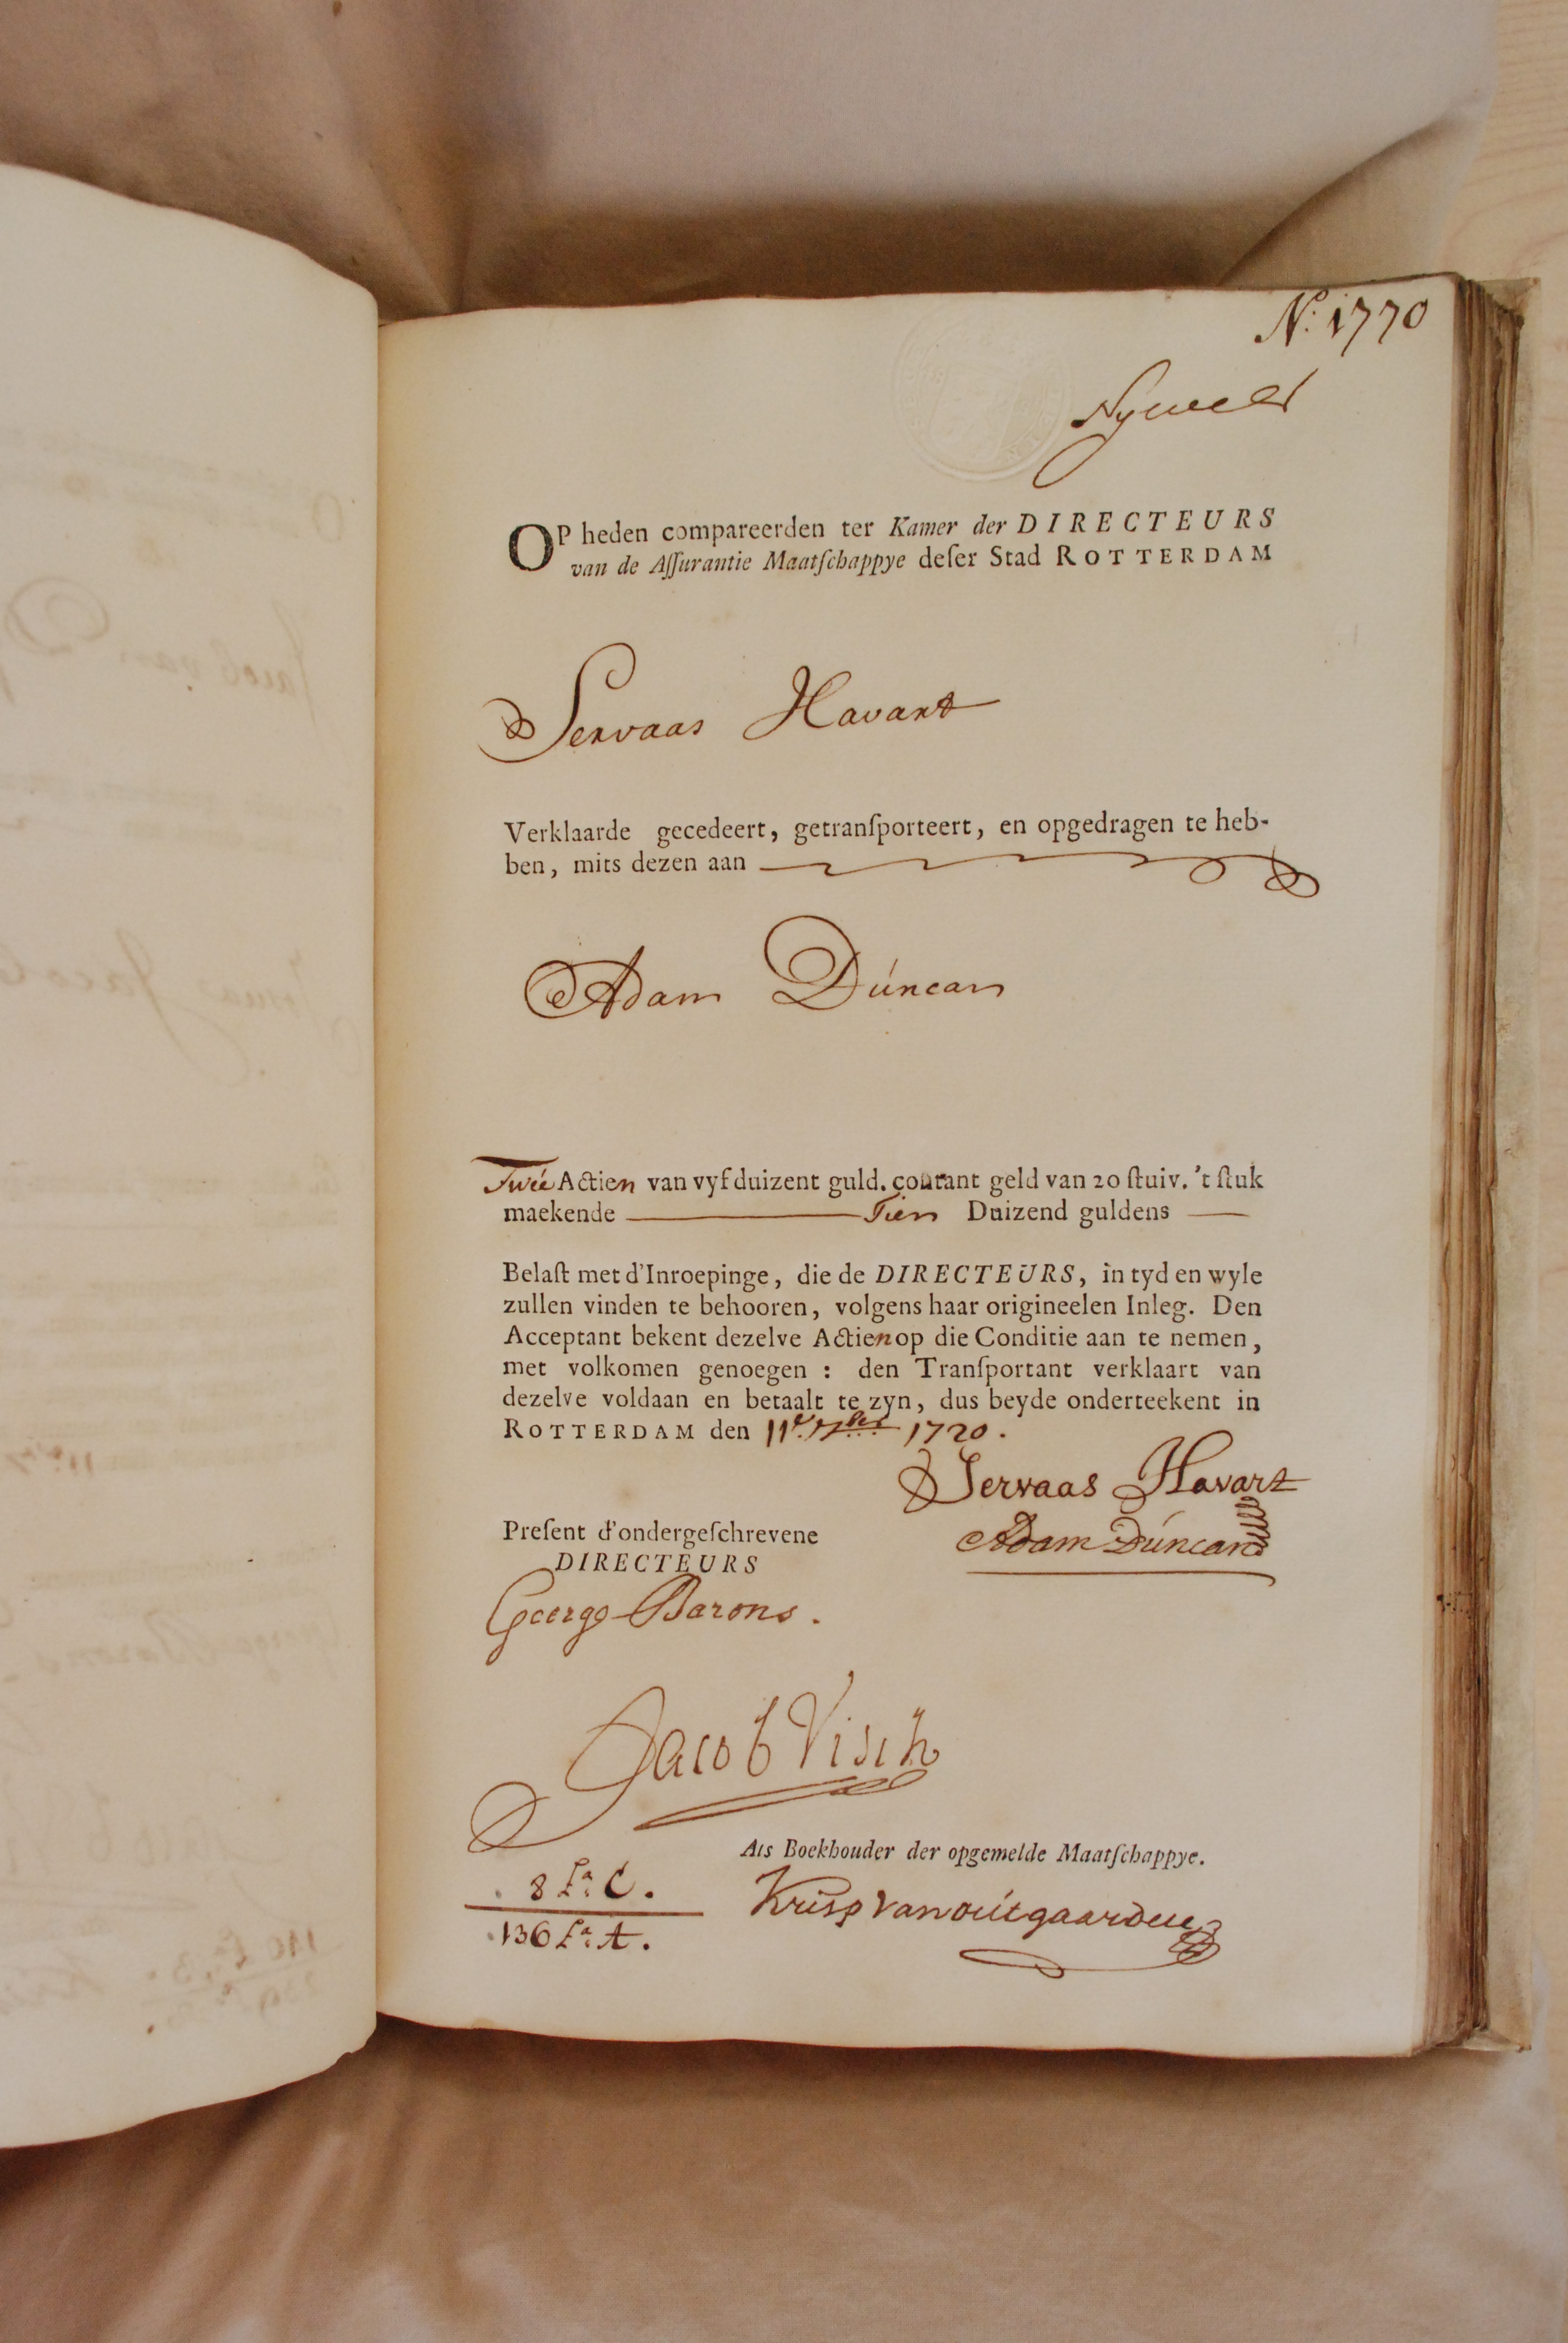 No. 1770
OP heden compareerden ter Kamer der DIRECTEURS
van de Aſſurantie Maatſchappye deſer Stad ROTTERDAM
Servaas Havart
Verklaarde gecedeert, getranſporteert, en opgedragen te heb-
ben, mits dezen aan
Adam Dúncan
Twée Actien van vyf duizent guld. courant geld van 20 ſtuiv. 't ſtuk
maekende Tien Duizend guldens
Belaſt met d'Inroepinge, die de DIRECTEURS, in tyd en wyle
zullen vinden te behooren, volgens haar origineelen Inleg. Den
Acceptant bekent dezelve Actien op die Conditie aan te nemen,
met volkomen genoegen : den Tranſportant verklaart van
dezelve voldaan en betaalt te zyn, dus beyde onderteekent in
ROTTERDAM den 11e. 7ber 1720.
Servaas Havart
Preſent d'ondergeſchrevene
Adam Dúncan
DIRECTEURS
George Barons.
Jacob Visch
Als Boekhouder der opgemelde Maatſchappye.
8 La. C.
Krisp van outgaarden
136 La. A.